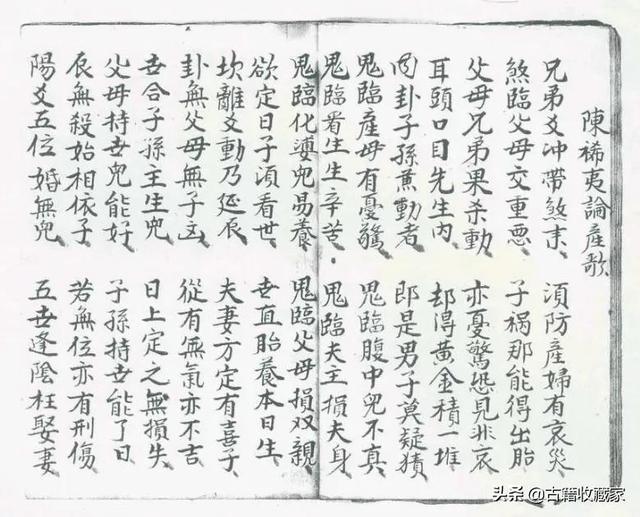 陳稀夷論產歌
兄弟爻冲帶煞末、湏防產婦有哀災、
煞臨父母交重惡、子禍那能得出胎
父母兄弟果杀動亦憂驚恐見非哀
耳頭口目先生內、却得黃金積一堆
卦子孫蕉動者即是男子莫疑猜
鬼臨產母有憂驚鬼臨腹中兒不真、
鬼臨看生生辛苦、鬼臨夫主損夫身
鬼臨化婆兒易養鬼臨父母損双親
欲定日子湏看世、世直胎養本日生、
坎離爻動乃延辰、夫妻方定有喜子、
卦無父母無子、從有無氣亦不吉
世合子孫主生兒、日上定之無損失、
父母持世兒能好、子孫持世能了日
辰無殺始相依子、若無位亦有刑傷
陽爻五位婚無兒、五世逢陰枉娶妻
头条@古籍收藏家